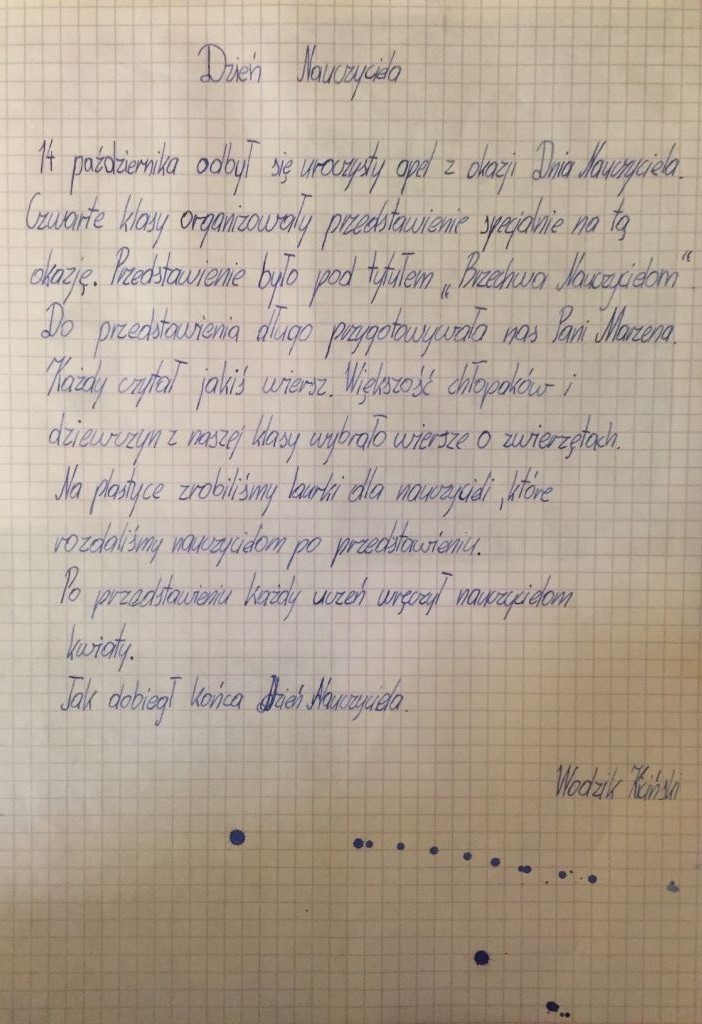 Dzień Nauczyciela
14 października odbył się uroczysty apel z okazji Dnia Nauczyciela.
Czwarte klasy organizowały przedstawienie specjalnie na tą
okazję. Przedstawienie było pod tytułem „Brzechwa Nauczycielom“.
Do przedstawienia długo przygotowywała nas Pani Marzena.
Każdy czytał jakiś wiersz. Większość chłopaków i
dziewczyn z naszej klasy wybrało wiersze o zwierzętach.
Na plastyce zrobiliśmy laurki dla nauczycieli, które
rozdaliśmy nauczycielom po przedstawieniu.
Po przedstawieniu każdy uczeń wręczył nauczycielom
kwiaty.
Tak dobiegł końca Dzień Nauczyciela.
Wodzik